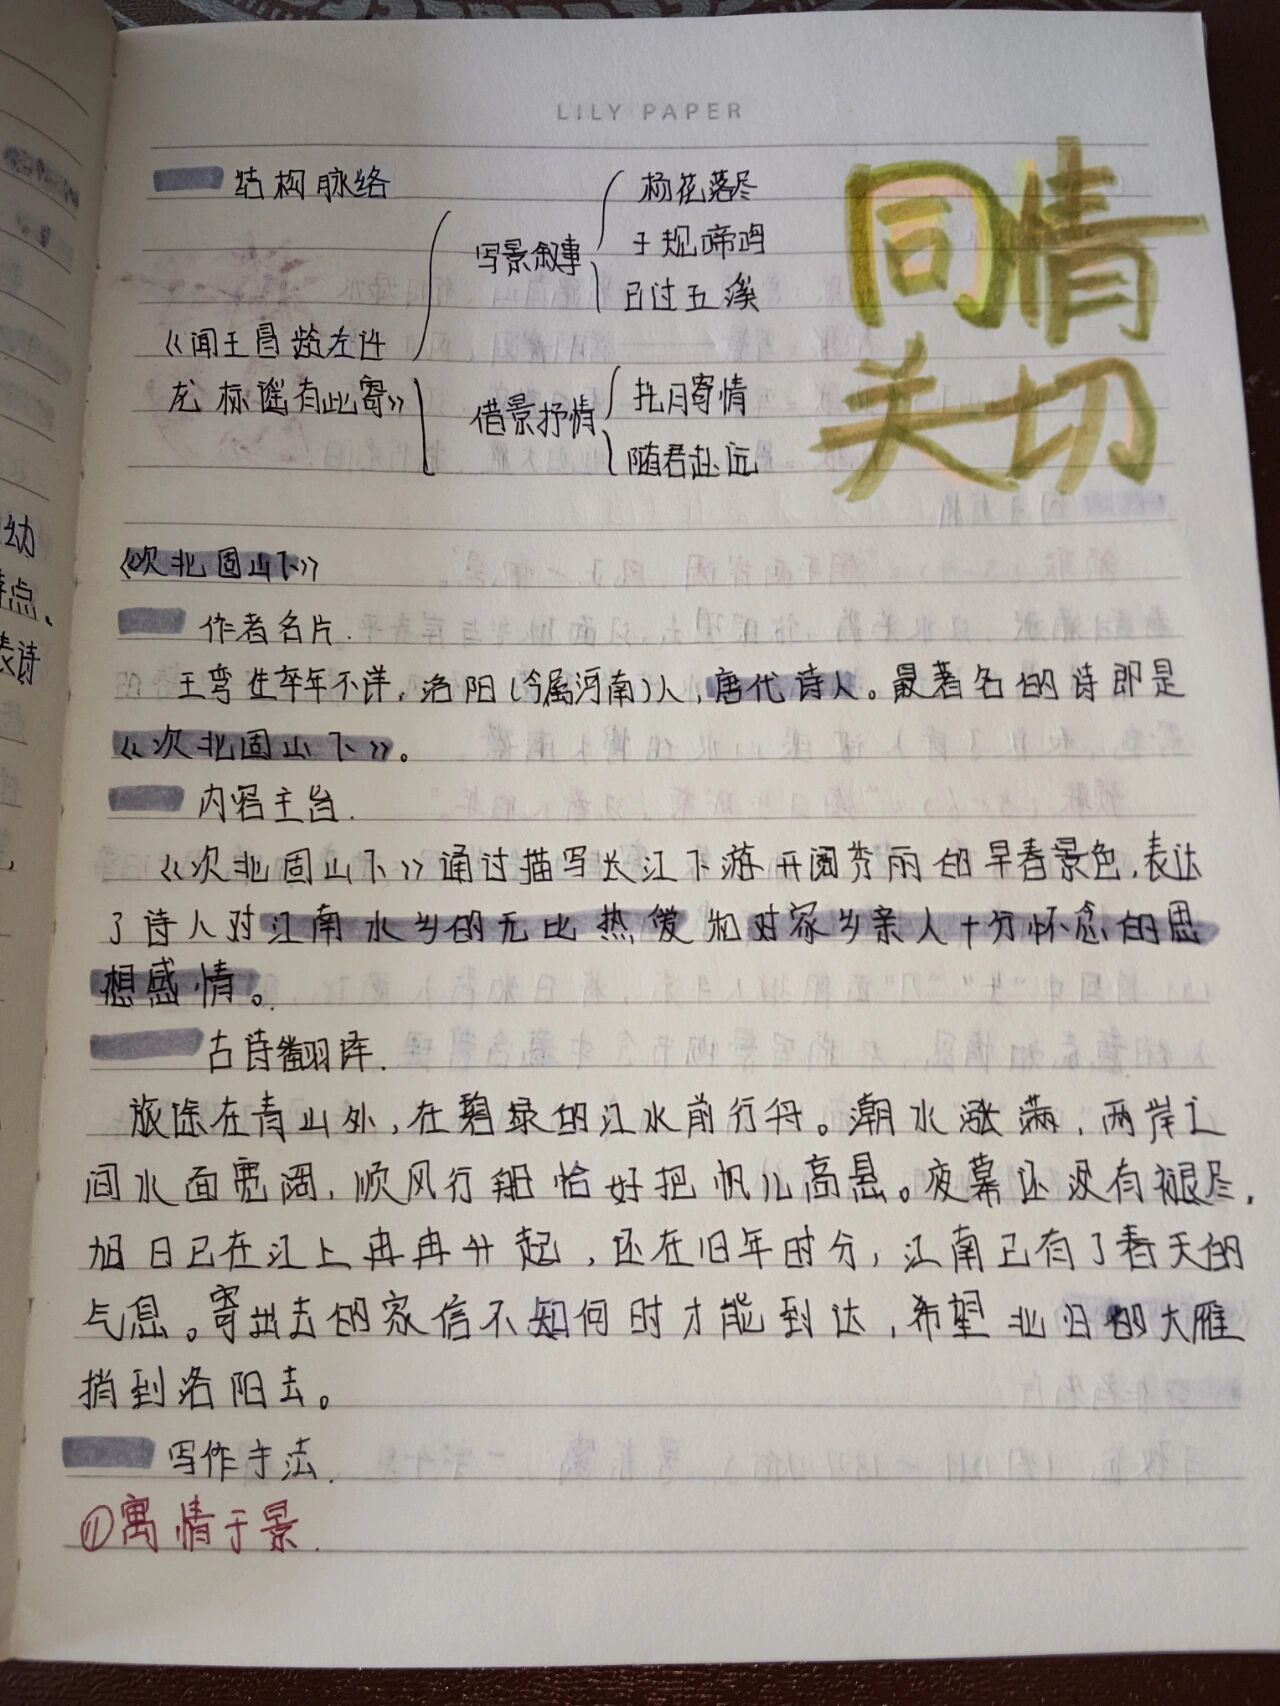 LILY PAPER
结构脉络
杨花落尽
写景叙事
子规啼鸣
已过五溪
同情
关切
《闻王昌龄左迁
龙标遥有此寄》
借景抒情
托月寄情
随君赴远
《次北固山下》
作者名片.
王弯生卒年不详,洛阳(今属河南)人,唐代诗人。最著名的诗即是
《次北固山下》。
内容主旨.
《次北固山下》通过描写长江下游开阔秀丽的早春景色,表达
了诗人对江南水乡的无比热爱和对家乡亲人十分怀念的思
想感情。
古诗翻译.
旅途在青山外,在碧绿的江水前行舟。潮水涨满,两岸之
间水面宽阔,顺风行船恰好把帆儿高悬。夜幕还没有褪尽,
旭日已在江上冉冉升起,还在旧年时分,江南已有了春天的
气息。寄出去的家信不知何时才能到达,希望北归的大雁
捎到洛阳去。
写作手法.
(1)寓情于景.
幼
特点、
表诗